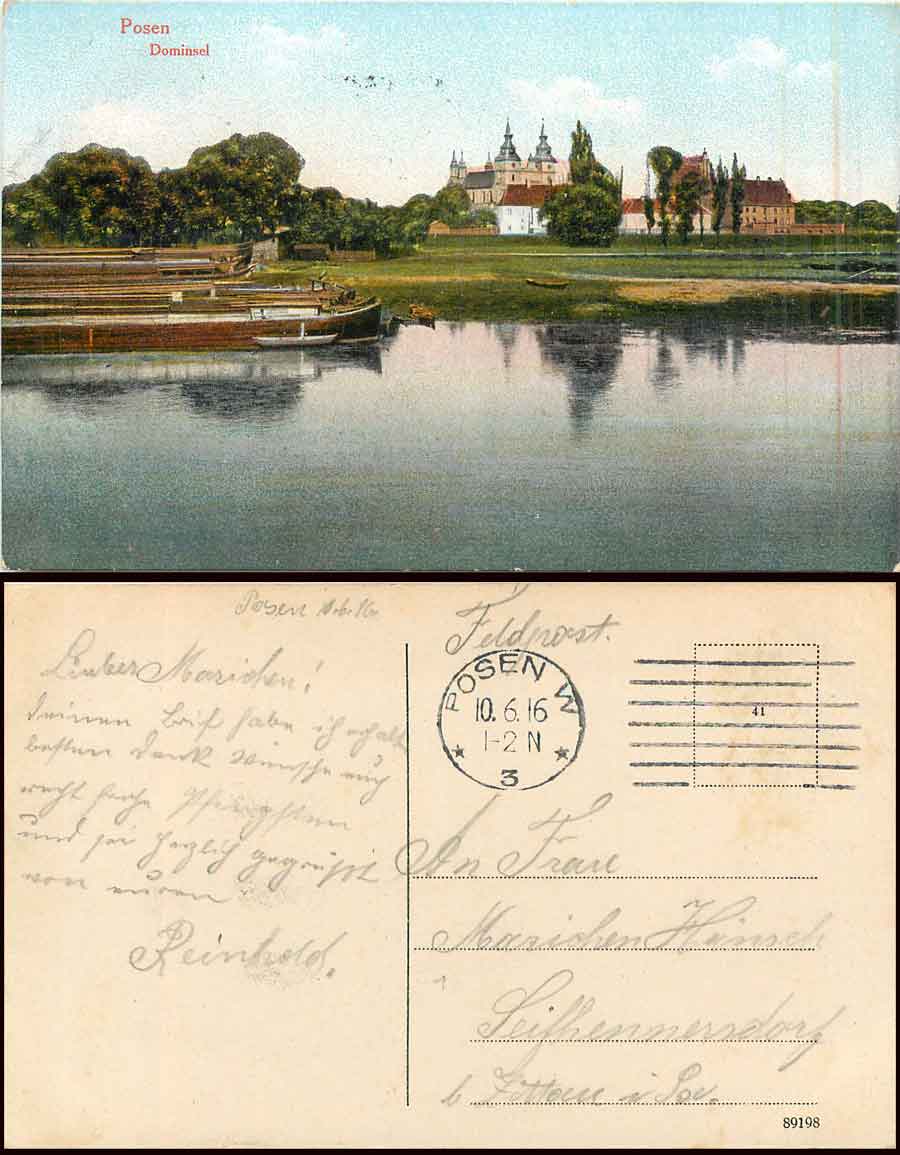 Posen
Dominsel
Posen 10.6.16
Feldpost.
POSEN W
10.6.16
1-2 N
3
41
Liebes Mariechen!
deinen Brief habe ich erhalt
besten Dank wünsche euch
recht frohe Pfingsten
und sei herzlich gegrüßt
von euren
Reinhold.
An Frau
Mariechen Hänsch
Seifhennersdorf
b. Zittau i. Sa.
89198